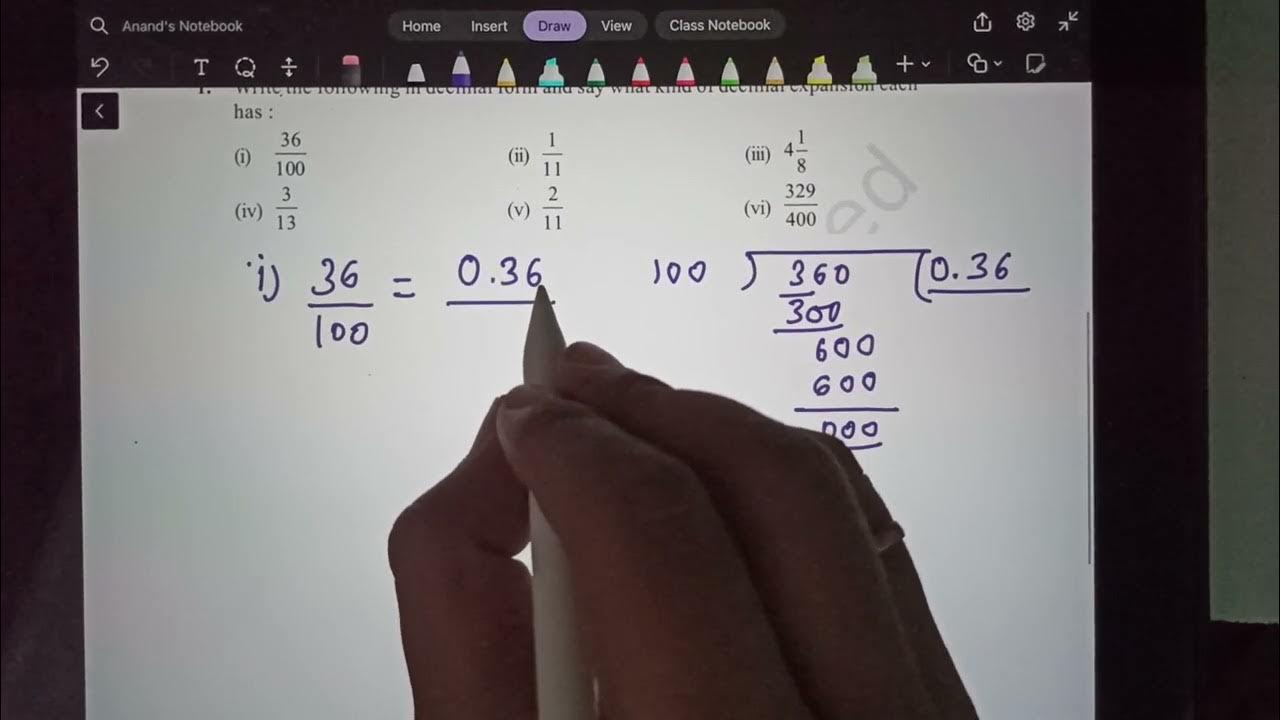 Anand's Notebook Home Insert Draw View Class Notebook
T
1. Write the following in decimal form and say what kind of decimal expansion each
has :
(i) 36/100 (ii) 1/11 (iii) 4 1/8
(iv) 3/13 (v) 2/11 (vi) 329/400
ed
i) 36/100 = 0.36
100 ) 360 ( 0.36
300
600
600
000